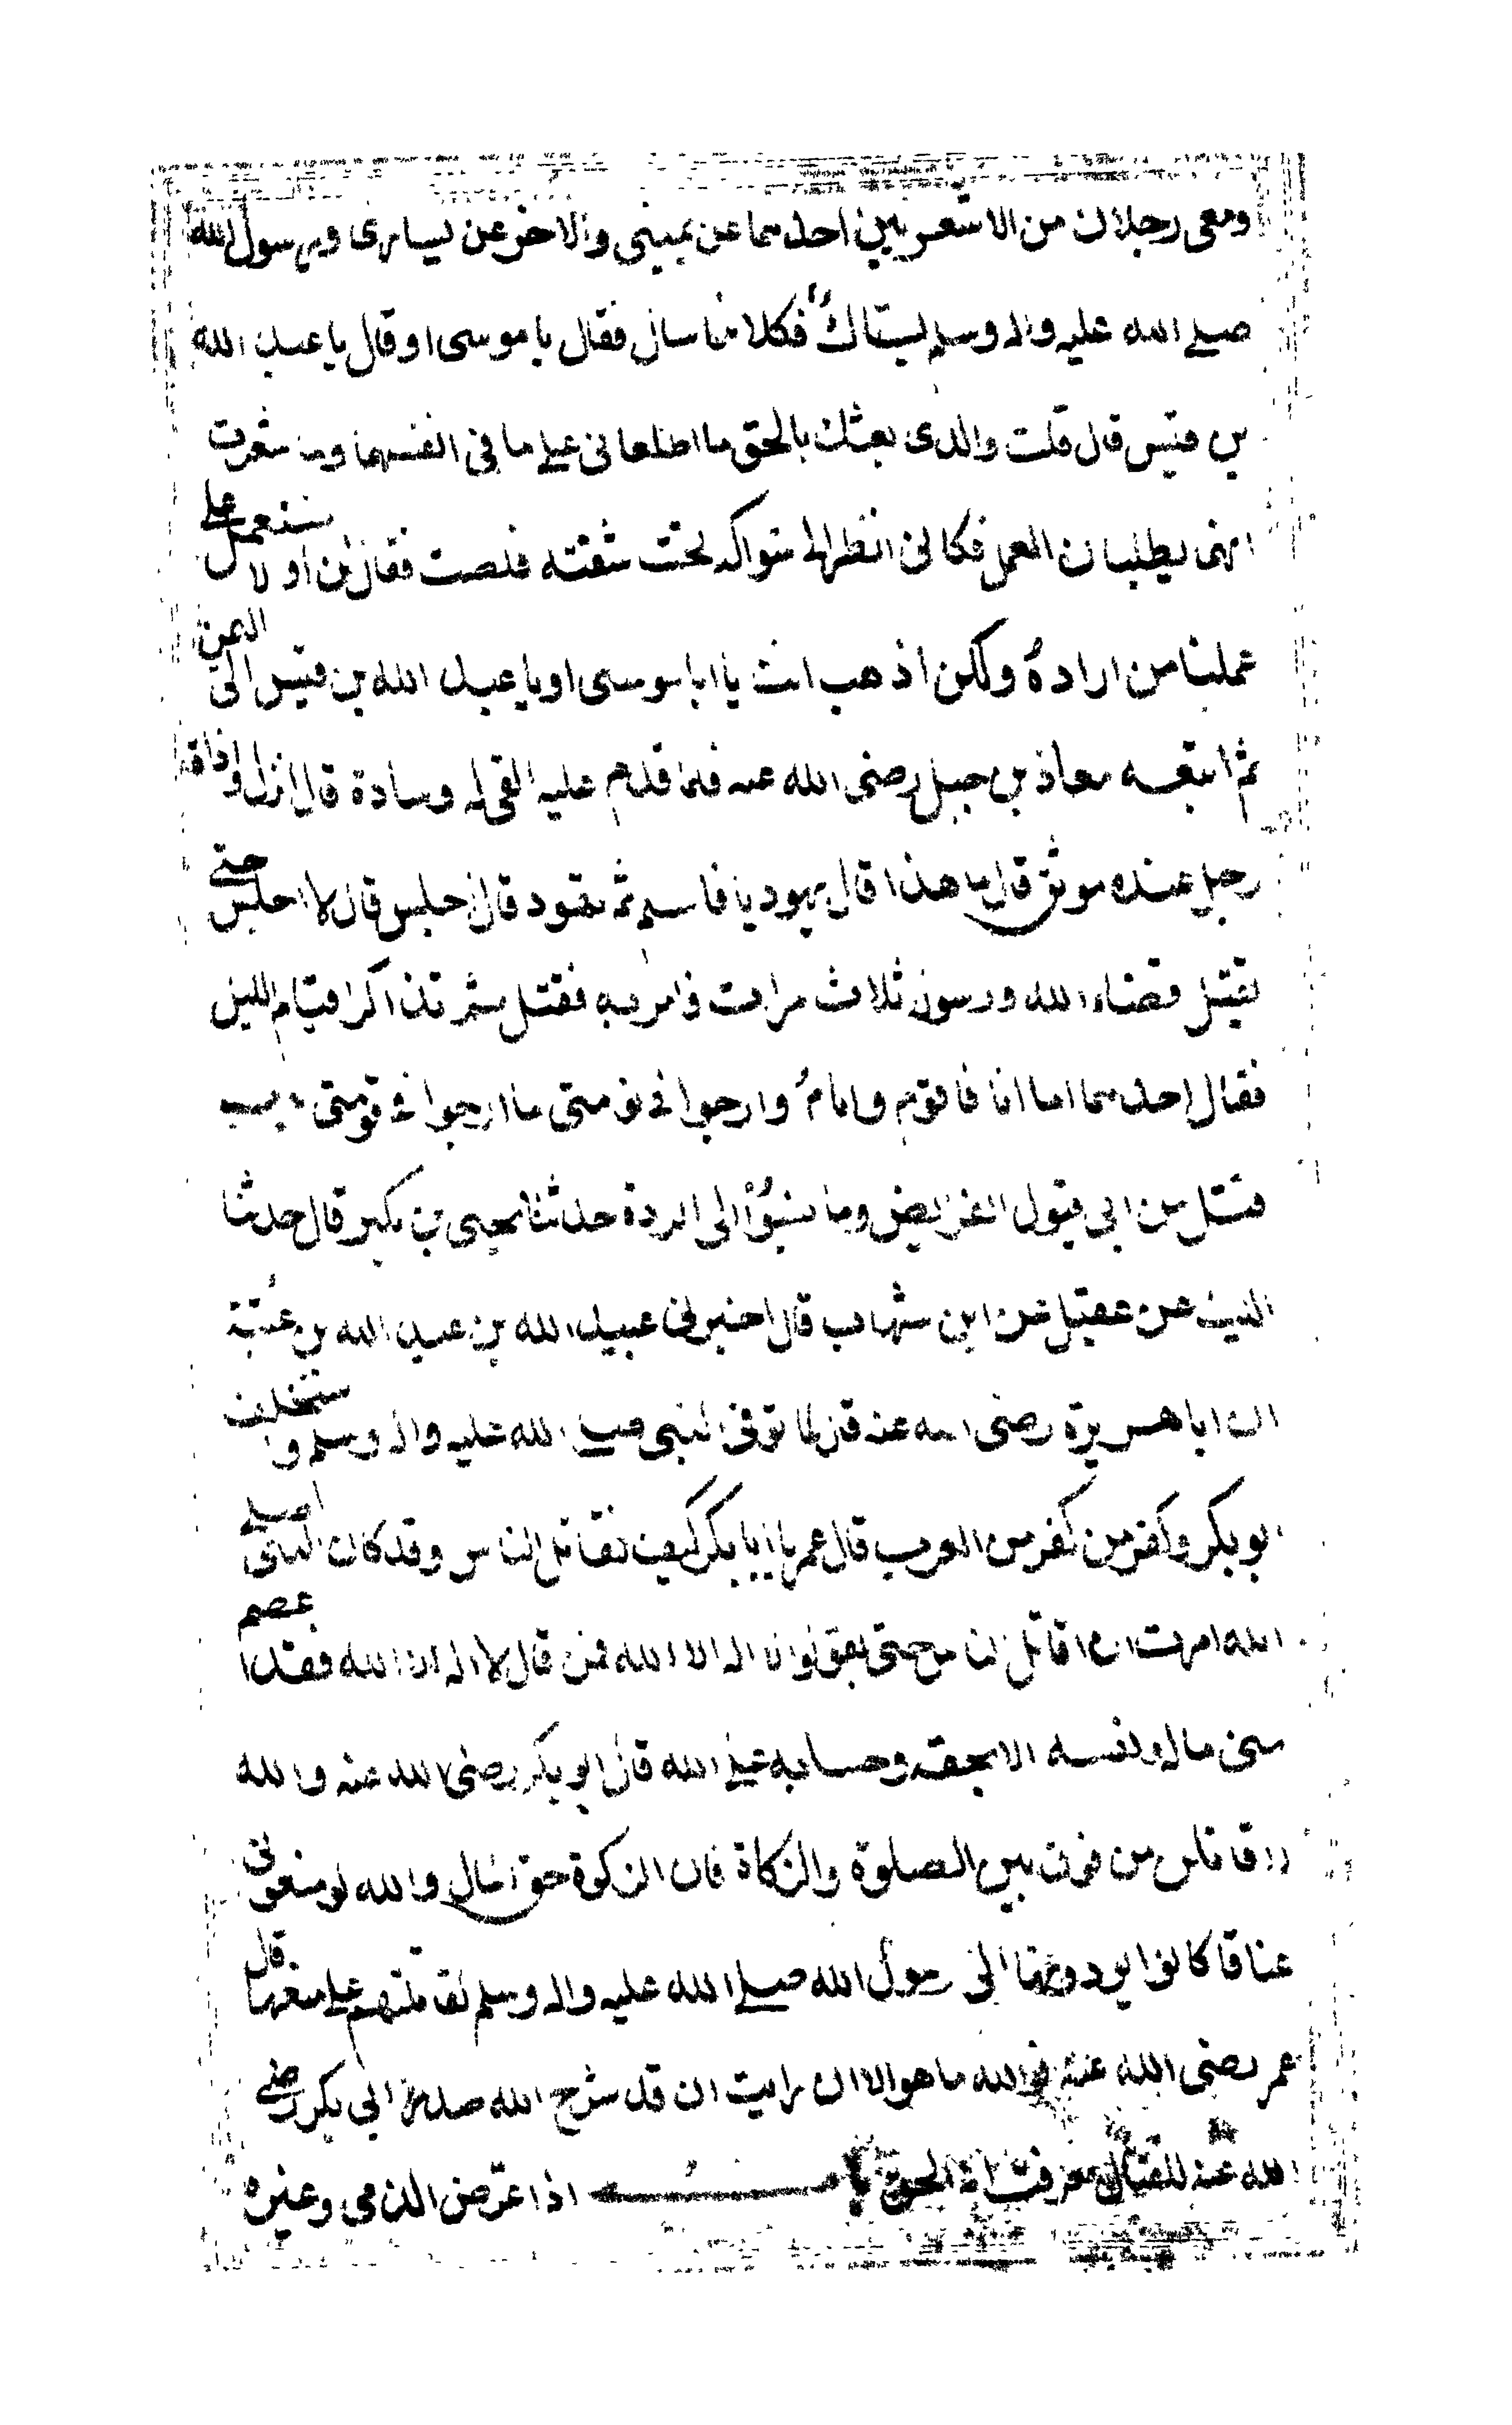 ومعى رجلان من الاشعريين احدهما عن يمينى والاخر عن يسارى ورسول الله
صلى الله عليه واله وسلم يستاك فكلاهما سأل فقال يا موسى او قال يا عبد الله
بن قيس قال قلت والذى بعثك بالحق ما اطلعانى على ما فى انفسهما وما شعرت
انهما يطلبان العمل فكانى انظر الى سواكه تحت شفته قلصت فقال لن او لا نستعمل على
عملنا من اراده ولكن اذهب انت يا ابا موسى او يا عبد الله بن قيس الى اليمن
ثم اتبعه معاذ بن جبل رضى الله عنه فلما قدم عليه القى له وسادة قال انزل واذا
رجل عنده موثق قال ما هذا قال يهوديا فاسلم ثم تهود قال اجلس قال لا اجلس حتى
يقتل قضاء الله ورسوله ثلاث مرات فامر به فقتل ثم تذاكرا قيام الليل
فقال احدهما اما انا فاقوم وانام وارجوا فى نومتى ما ارجوا فى قومتى باب
قتل من ابى قبول الفرايض وما نسبوا الى الردة حدثنا يحيى بن بكير قال حدثنا
الليث عن عقيل عن ابن شهاب قال اخبرنى عبيد الله بن عبد الله بن عتبة
ان ابا هريرة رضى الله عنه قال لما توفى النبى صلى الله عليه واله وسلم واستخلف
ابو بكر وكفر من كفر من العرب قال عمر يا ابا بكر كيف تقاتل الناس وقد قال النبى صلى
الله امرت ان اقاتل الناس حتى يقولوا لا اله الا الله فمن قال لا اله الا الله فقد عصم
منى ماله ونفسه الا بحقه وحسابه على الله قال ابو بكر رضى الله عنه والله
لاقاتلن من فرق بين الصلوة والزكاة فان الزكوة حق المال والله لو منعونى
عناقا كانوا يودونها الى رسول الله صلى الله عليه واله وسلم لقاتلتهم على منعها قال
عمر رضى الله عنه فوالله ما هو الا ان رايت ان قد شرح الله صدر ابى بكر رضى
الله عنه للقتال فعرفت انه الحق باب اذا عرض الذمى وغيره